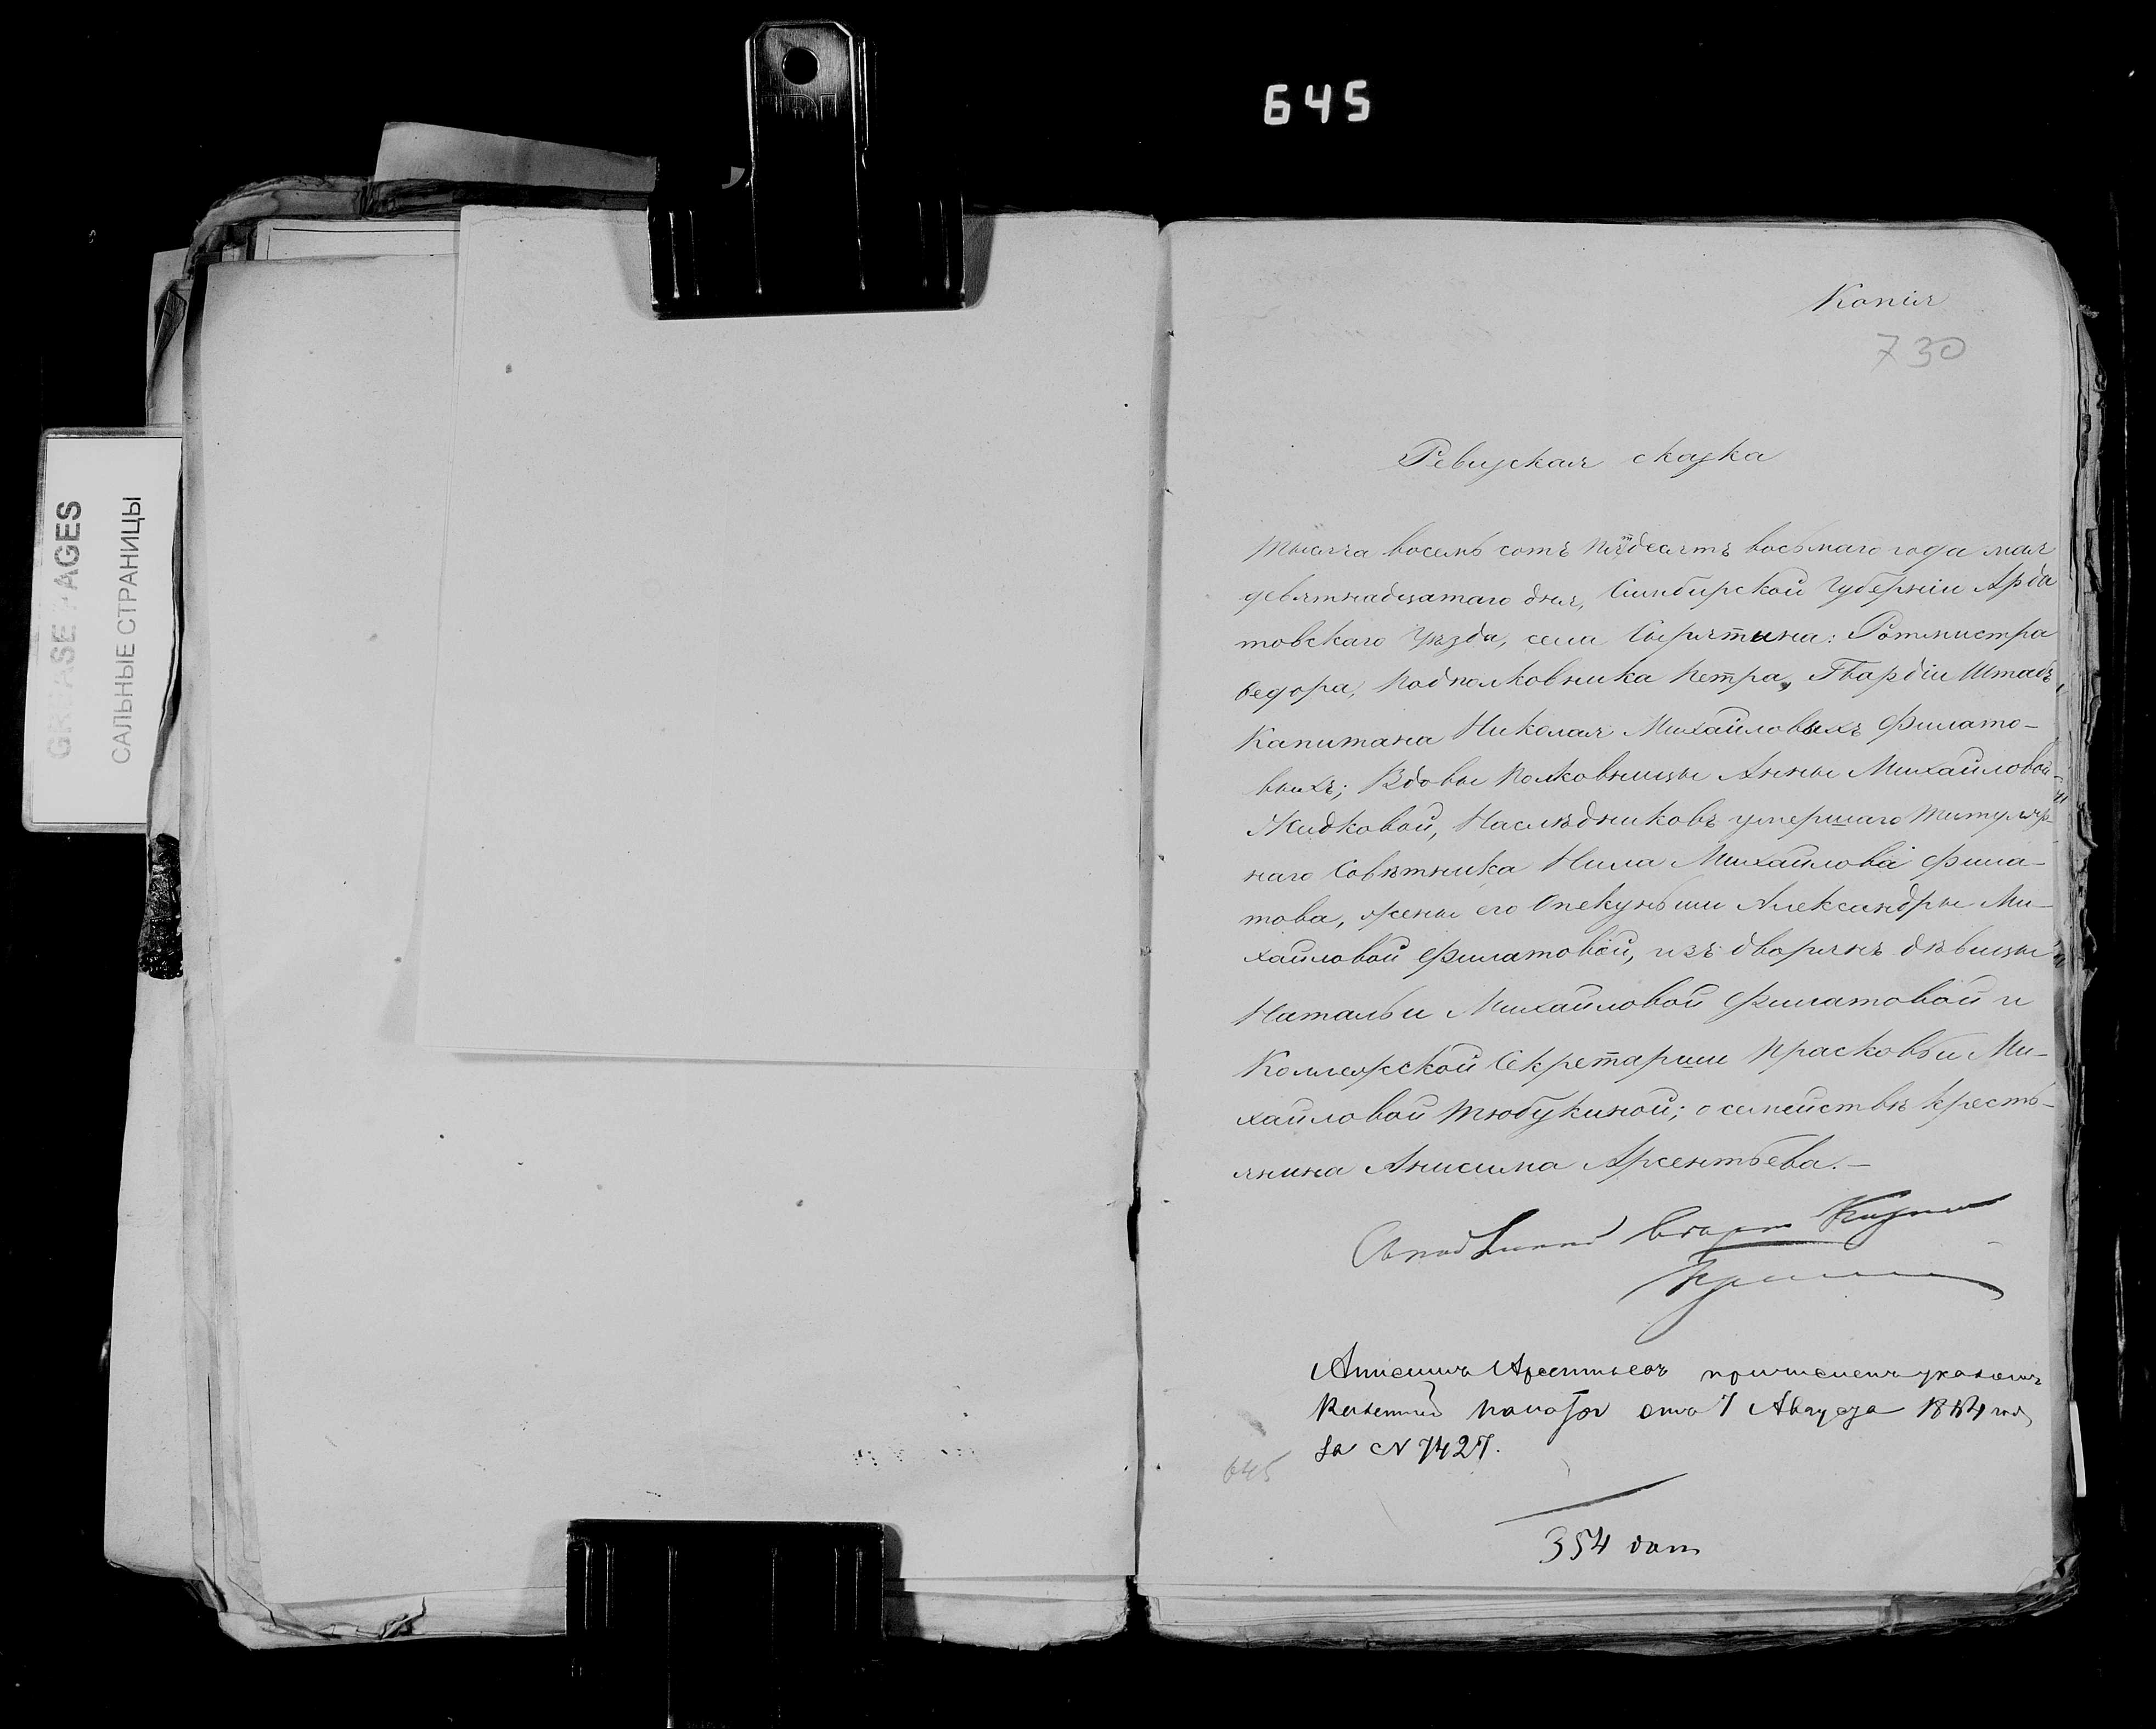 645
GREASE PAGES
САЛЬНЫЕ СТРАНИЦЫ
Копія
730
Ревизская сказка
Тысяча восемь сотъ пятдесятъ восьмаго года мая
девятнадцатаго дня, Симбирской Губерніи Арда
товскаго Уѣзда, села Сырятина: Ротмистра
Ѳедора, Подполковника Петра, Гвардіи Штабъ
Капитана Николая Михайловыхъ Филато-
выхъ; Вдовы Полковницы Анны Михайловой
Жидковой, Наслѣдниковъ умершаго Титуляр-
наго Совѣтника Нила Михайлова Фила-
това, жены его Опекунши Александры Ми-
хайловой Филатовой, изъ дворянъ дѣвицы
Натальи Михайловой Филатовой и
Коллежской Секретарши Прасковьи Ми-
хайловой Тюбукиной; о семействѣ кресть-
янина Анисима Арсентьева.-
Анисимъ Арсентьевъ причисленъ указомъ
Казенной палаты отъ 7 Августа
за N 7427.
645
354